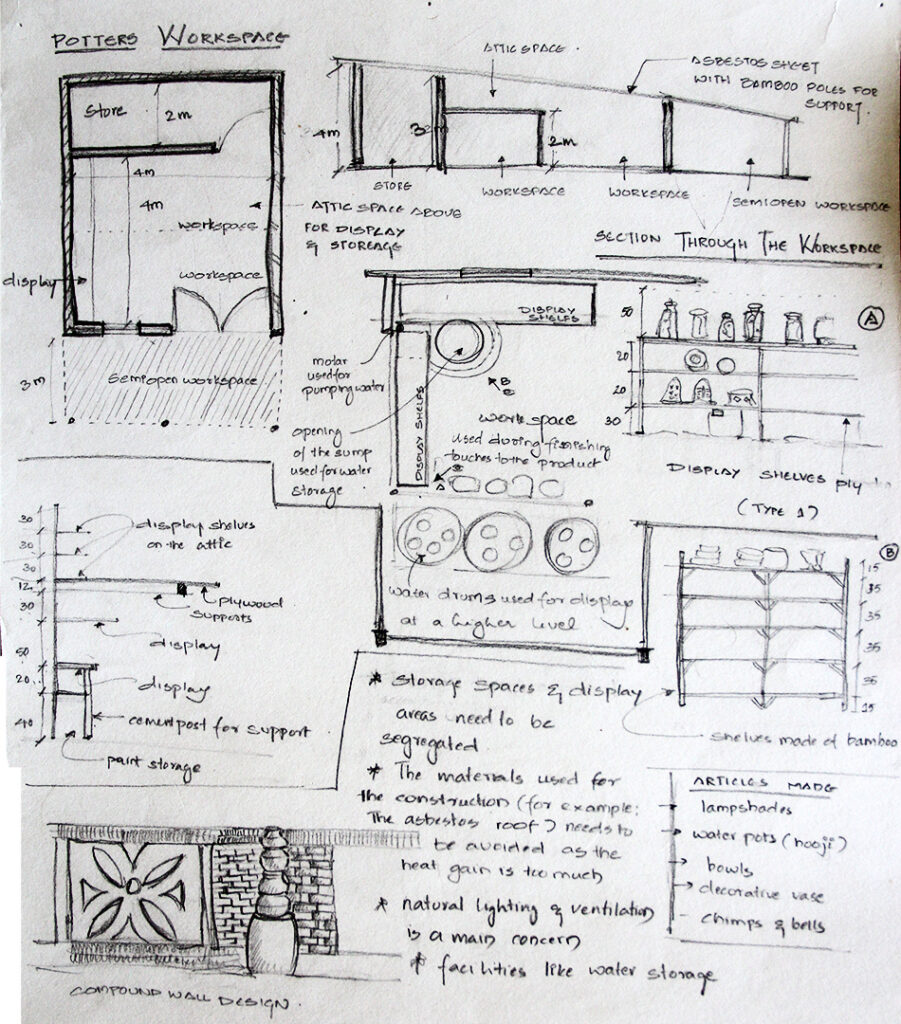 POTTERS WORKSPACE
Store
2m
4m
4m
workspace
workspace
display
3m
Semiopen workspace
ATTIC SPACE ABOVE
FOR DISPLAY
& STOREAGE
ATTIC SPACE
ASBESTOS SHEET
WITH BAMBOO POLES FOR
SUPPORT.
4m
2m
STORE
WORKSPACE
WORKSPACE
SEMIOPEN WORKSPACE
SECTION THROUGH THE WORKSPACE
DISPLAY
SHELVES
DISPLAY SHELVES
molar
used for
pumping water
opening
of the sump
used for water
storage
B
C
work space
used during finishing
touches to the product
A
water drums used for display
at a higher level.
50
20
20
30
A
DISPLAY SHELVES PLY
(TYPE 1)
30
30
30
12
30
50
20
40
display shelves
on the attic
plywood
supports
display
display
cement post for support
paint storage
B
15
35
35
35
35
15
shelves made of bamboo
* storage spaces & display
areas need to be
segregated
* The materials used for
the construction (for example:
The asbestos roof) needs to
be avoided as the
heat gain is too much
* natural lighting & ventilation
is a main concern
* facilities like water storage
ARTICLES MADE
→ lampshades
→ water pots (hooji)
→ bowls
→ decorative vase
- chimps & bells
COMPOUND WALL DESIGN.